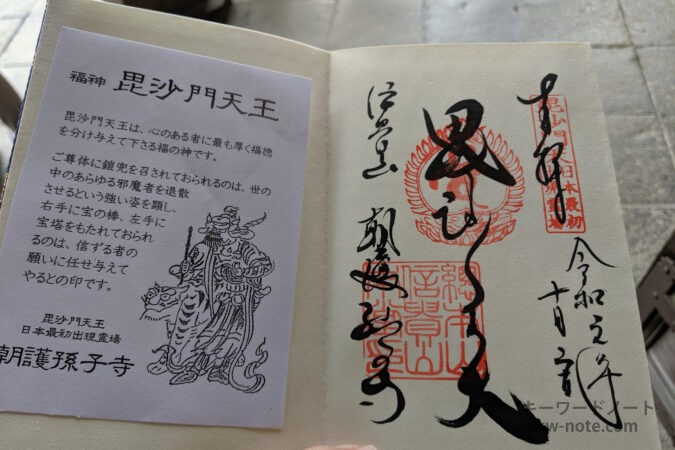 福神 毘沙門天王
毘沙門天王は、心のある者に最も厚く福徳
を分け与えて下さる福の神です。
ご尊体に鎧兜を召されておられるのは、世の
中のあらゆる邪魔者を退散
させるという強い姿を顕し、
右手に宝の棒、左手に
宝塔をもたれておられ
るのは、信ずる者の
願いに任せ与えて
やるとの印です。
毘沙門天王
日本最初出現霊場
朝護孫子寺
奉拝
令和元年
十月
毘沙門天
信貴山
朝護孫子寺
総本山
信貴山
キーワードノート
kw-note.com